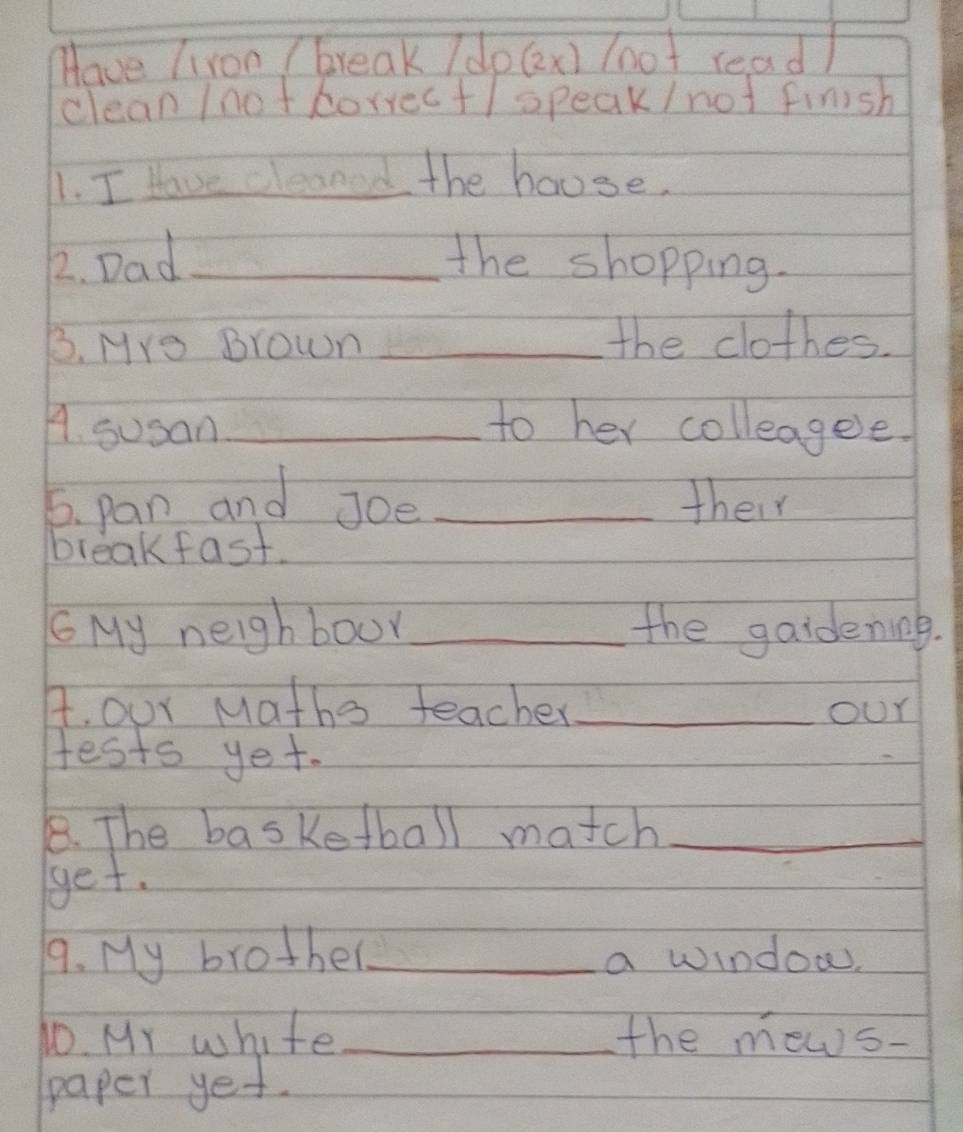 Have / iron / break / do (2x) / not read /
clean / not correct / speak / not finish
1. I Have cleaned the house.
2. Dad ________ the shopping.
3. Mrs Brown ________ the clothes.
4. susan ________ to her colleagee.
5. pan and Joe ________ their
breakfast.
6 My neighbour ________ the gardening.
7. our Maths teacher ________ our
tests yet.
8. The basketball match ________
yet.
9. My brother ________ a window.
10. Mr white ________ the mews-
paper yet.